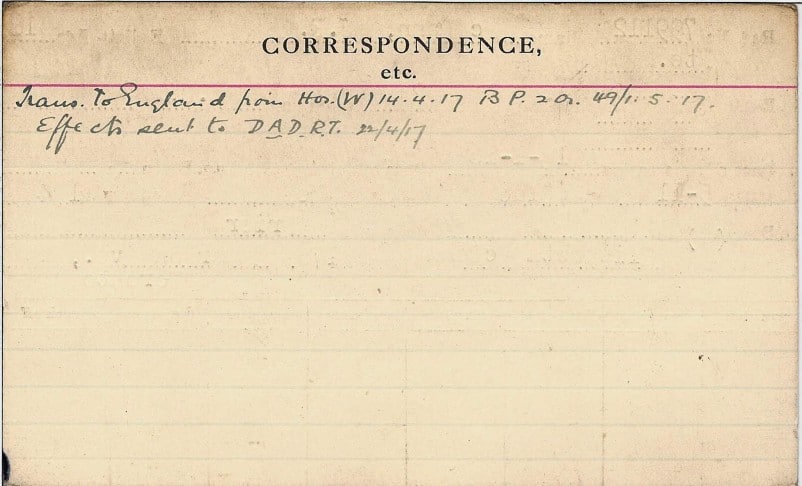 CORRESPONDENCE,
etc.
Trans. To England from Hos.(W) 14.4.17 B P. 2 Or. 49/1.5.17.
Effects sent to D.A.D.R.T. 22/4/17